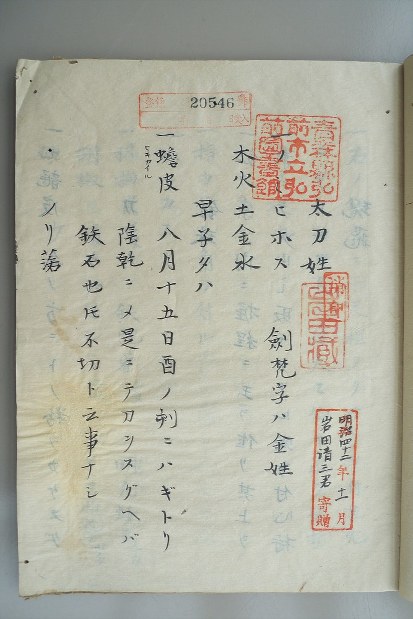 20546
青森縣弘
前市立弘
前圖書館
太刀姓
一ノヒホス 劍梵字ハ金姓
木火土金水
早子タハ
一蟾皮 八月十五日酉ノ刻ニハギトリ
ヒキカイル
陰乾ニメ是ニテカンスグヘバ
鉄石也トモ不切ト云事ナシ
・シリ蕩
明治四十二年十一月
岩田清三君寄贈